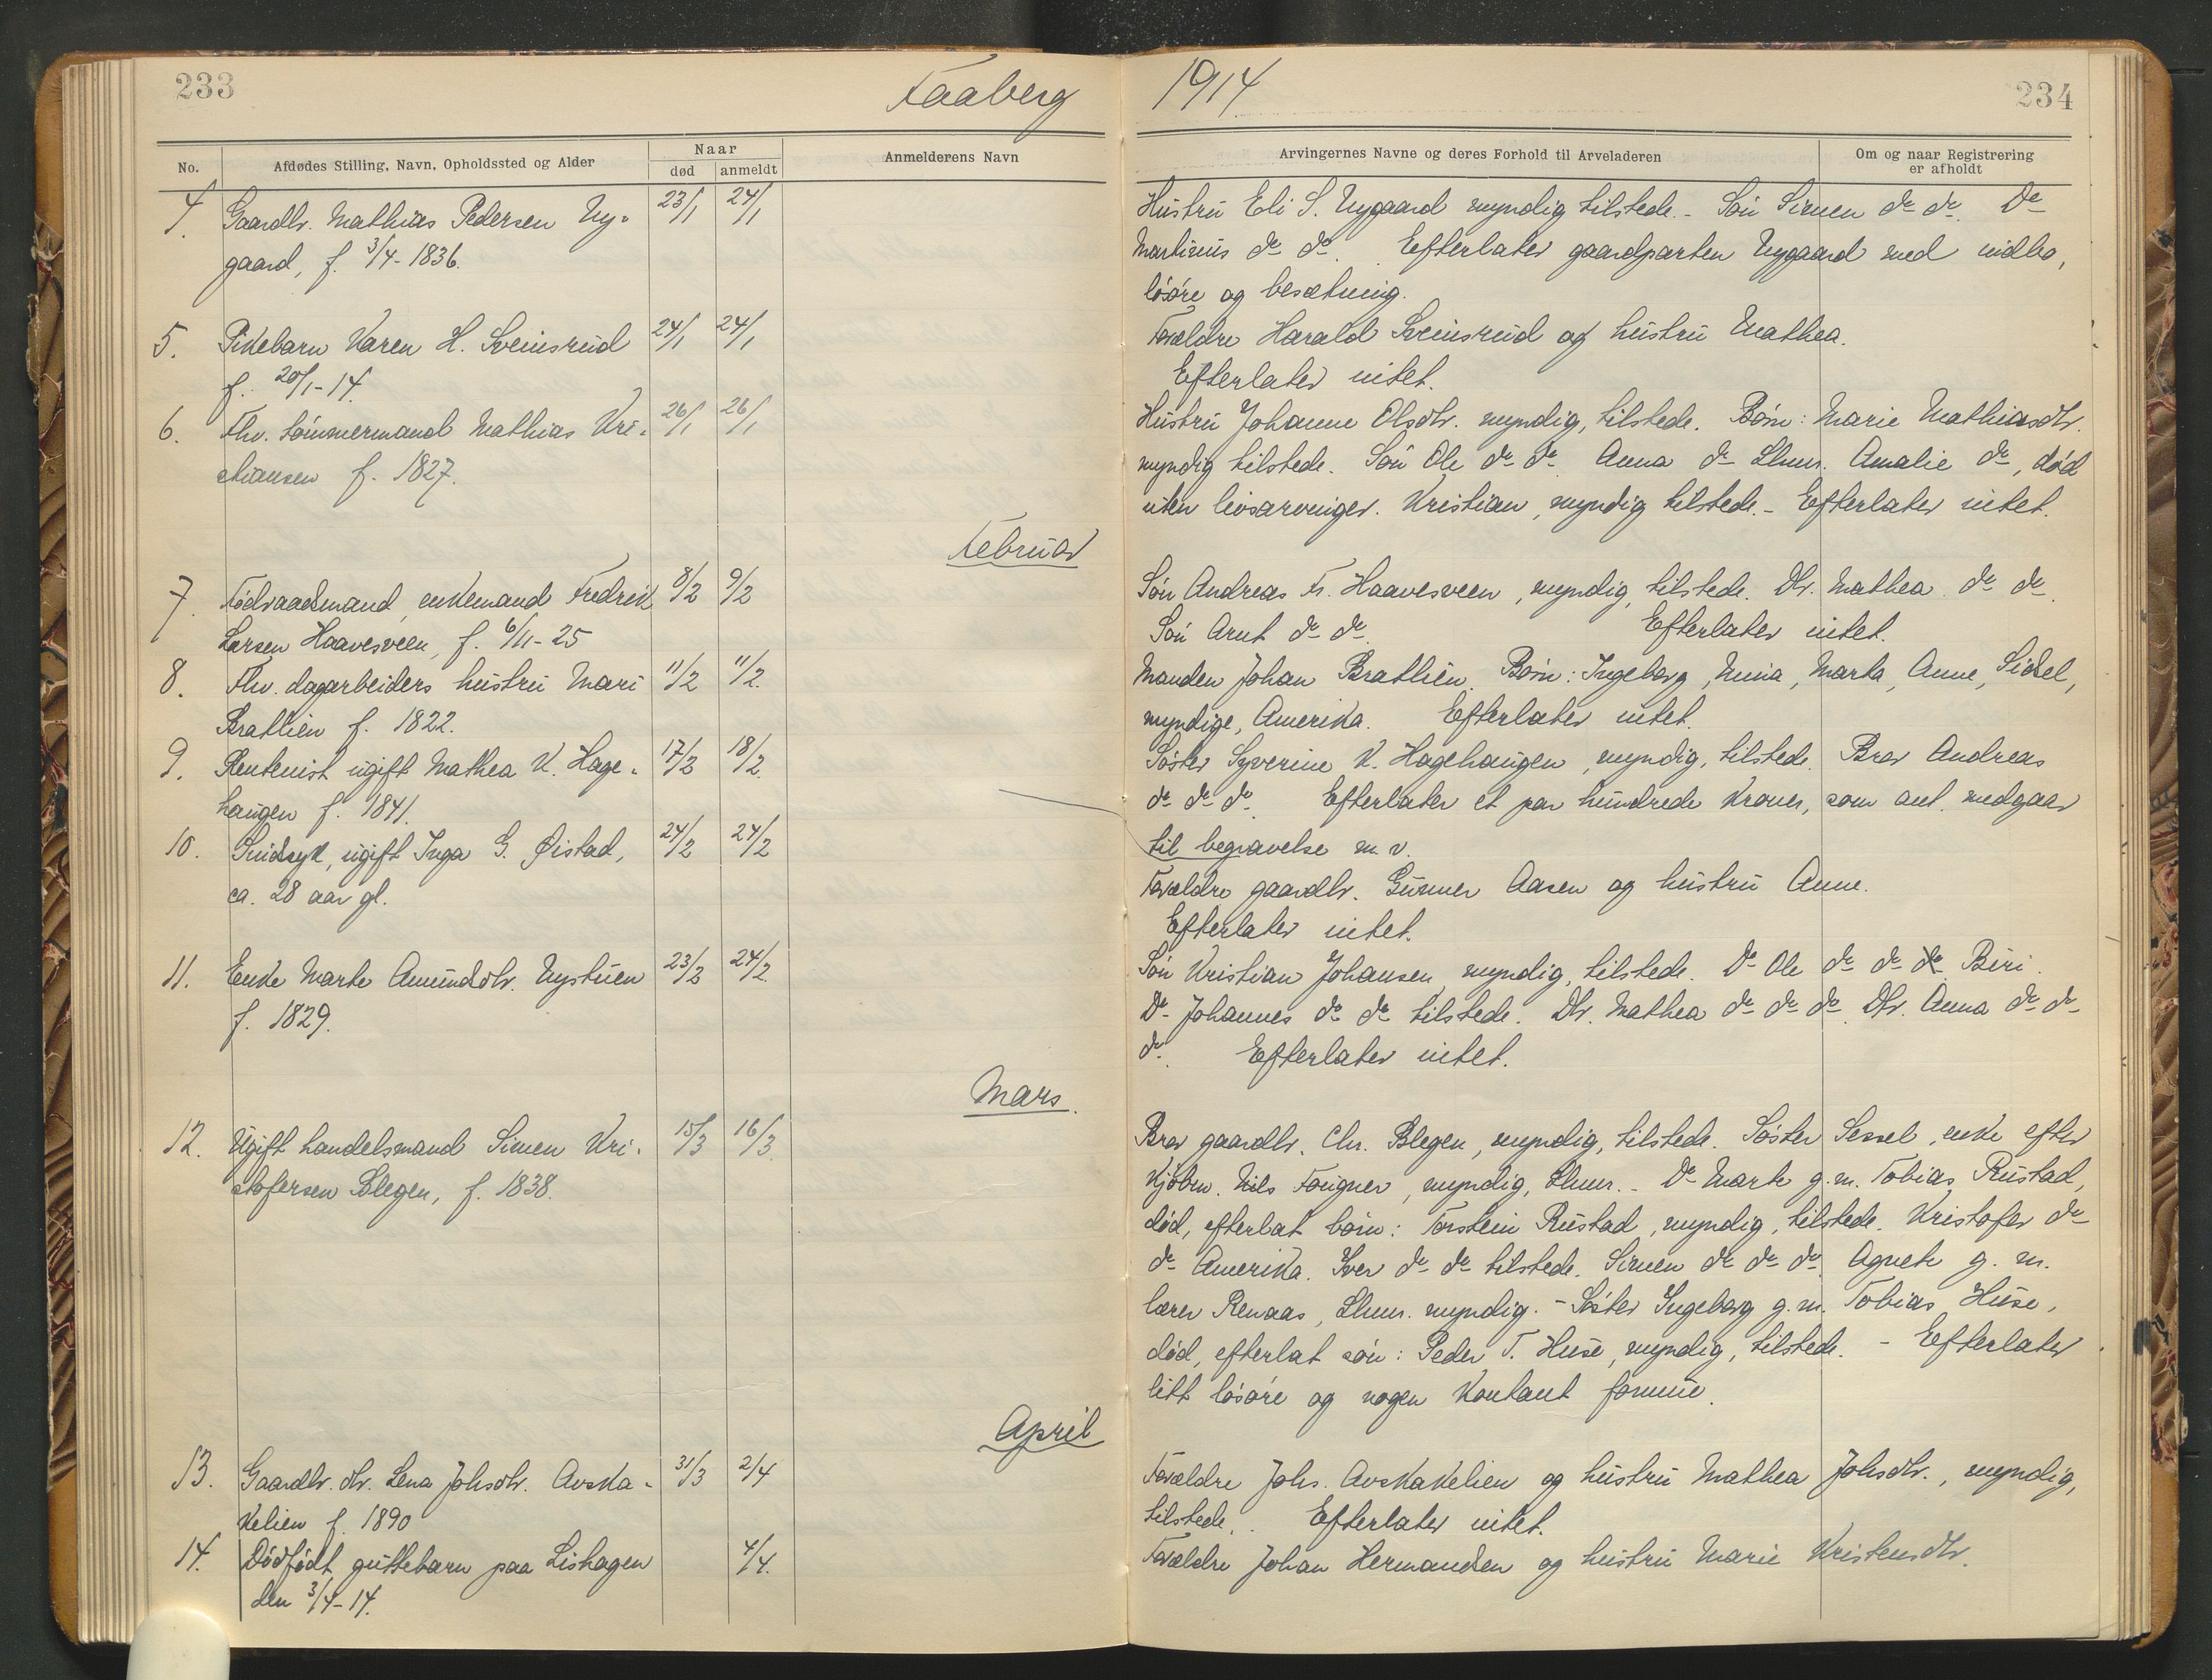 233
Faaberg
No.
Afdødes Stilling, Navn, Opholdssted og Alder
Naar
død
anmeldt
Anmelderens Navn
4. Gaardbr. Mathias Pedersen Ny- 23/1 24/1
gaard, f. 3/4-1836.
5. Pikebarn Karen H. Sveinsrud 24/1 24/1
f. 20/1-14.
6. Fhv. tømmermand Mathias Kri- 26/1 26/1
stiansen f. 1827.
Februar
7. Fødraadsmand, enkemand Fredrik 8/2 9/2
Larsen Haavesveen, f. 6/11-25
8. Fhv. dagarbeiders hustru Mari 11/2 11/2.
Bratlien f. 1822.
9. Rentenist ugift Mathea K. Hage- 17/2 18/2.
haugen f. 1841.
10. Sindsyk, ugift Inga G. Øistad, 24/2 24/2
ca. 28 aar gl.
11. Enke Marte Amundsdtr. Nystuen 23/2 24/2.
f. 1829.
Mars.
12. Ugift handelsmand Simen Kri- 15/3 16/3.
stofersen Blegen, f. 1838.
April
13. Gaardbr. dtr. Lena Johsdtr. Avska- 31/3 2/4
kelien f. 1890
14. Dødfødt guttebarn paa Lishagen 4/4.
den 3/4-14.
1914
234
Arvingernes Navne og deres Forhold til Arveladeren
Om og naar Registrering
er afholdt
Hustru Eli S. Nygaard myndig tilstede. - Søn Simen do do. Do
Martinus do do. Efterlater gaardparten Nygaard med indbo,
løsøre og besætning.
Forældre Harald Sveinsrud og hustru Mathea.
Efterlater intet.
Hustru Johanne Olsdtr. myndig, tilstede. Børn: Marie Mathiasdtr.
myndig tilstede. Søn Ole do do. Anna do Lhmr. Amalie do, død
uten livsarvinger. Kristian, myndig tilstede. - Efterlater intet.
Søn Andreas Fr. Haavesveen, myndig, tilstede. Dtr. Mathea do do.
Søn Arnt do do. Efterlater intet.
Manden Johan Bratlien. Børn: Ingeborg, Mina, Marta, Anne, Sidsel,
myndige, Amerika. Efterlater intet.
Søster Syverine K. Hagehaugen, myndig, tilstede. Bror Andreas
do do do. Efterlater et par hundrede kroner, som ant. medgaar
til begravelse m.v.
Forældre gaardbr. Gunner Aasen og hustru Anne.
Efterlater intet.
Søn Kristian Johansen, myndig, tilstede. Do Ole do do do Biri.
Do Johannes do do tilstede. Dtr. Mathea do do do. Dtr. Anna do do
do. Efterlater intet.
Bror gaardbr. Chr. Blegen, myndig, tilstede. Søster Sessel, enke efter
kjøbm. Nils Fougner, myndig, Lhmr. - Do Marte g.m. Tobias Rustad,
død, efterlat børn: Torstein Rustad, myndig, tilstede. Kristofer do
do Amerika. Iver do do tilstede. Simen do do do. Agnete g. m.
lærer Renaas, Lhmr. myndig. - Søster Ingeborg g.m. Tobias Huse,
død, efterlat søn: Peder T. Huse, myndig, tilstede. - Efterlater
litt løsøre og nogen kontant formue.
Forældre Johs. Avskakelien og hustru Mathea Johsdtr., myndig,
tilstede. Efterlater intet.
Forældre Johan Hermansen og hustru Marie Kristensdtr.